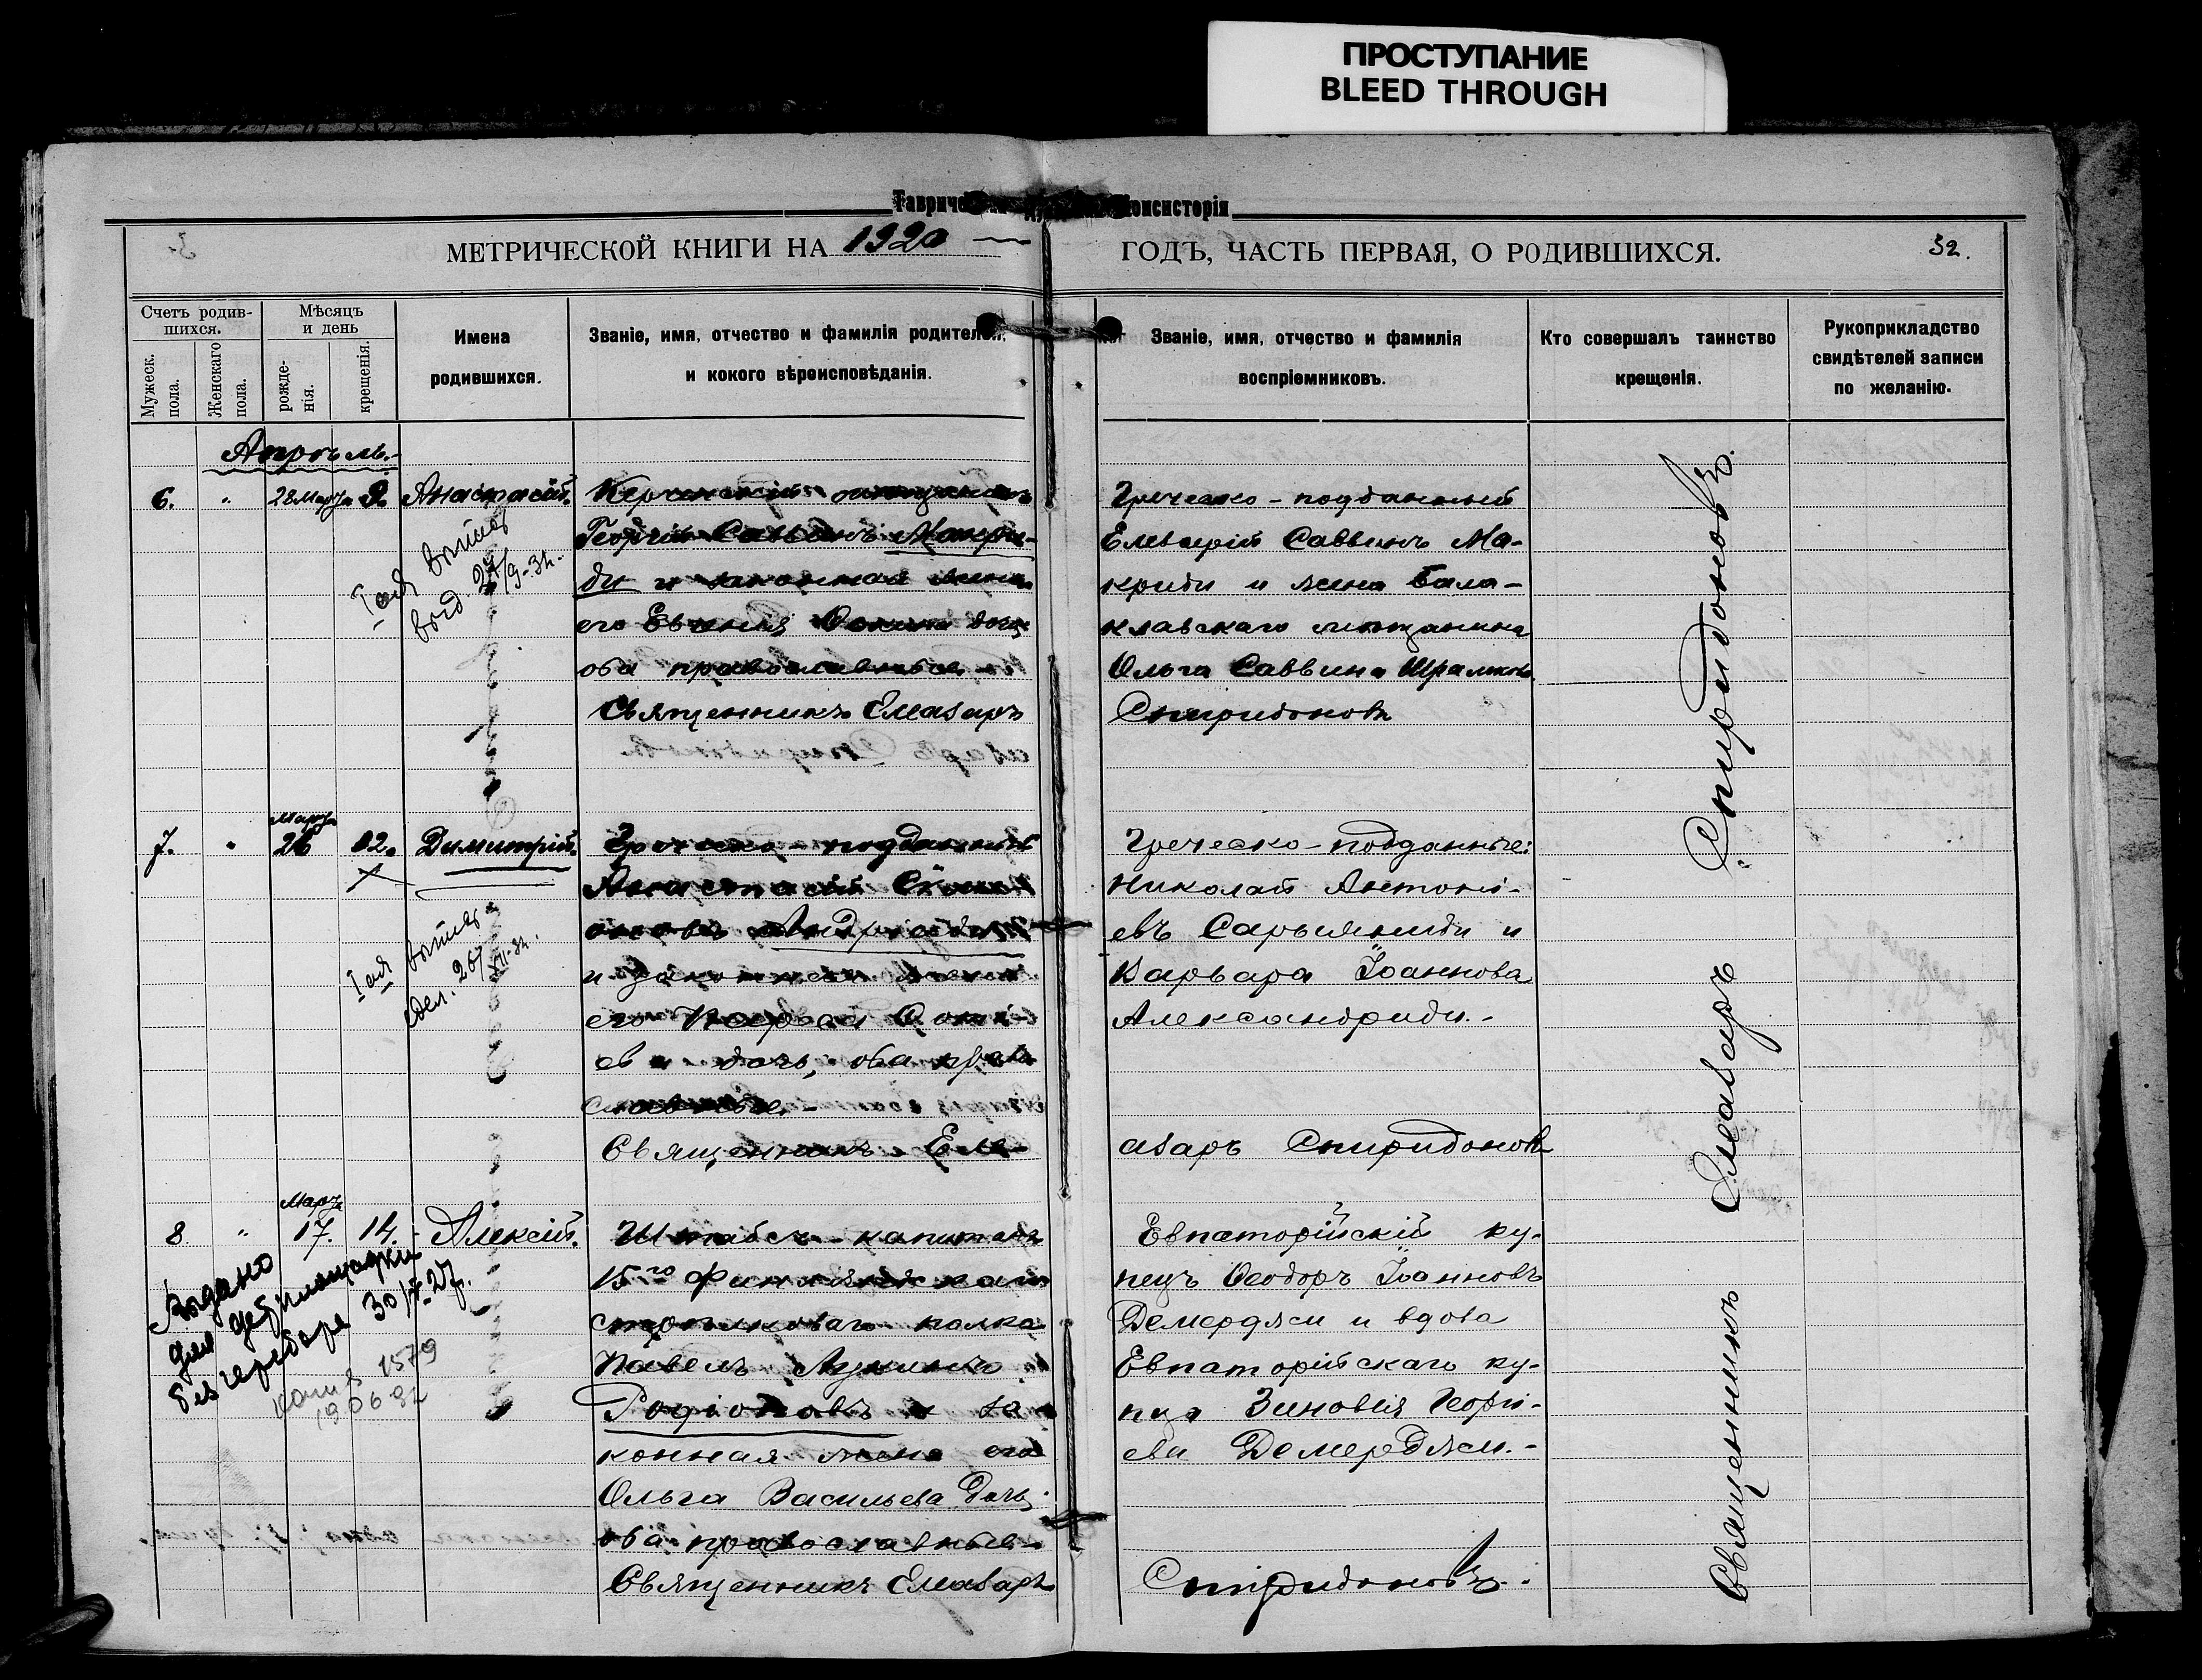 ПРОСТУПАНИЕ
BLEED THROUGH
Консисторія
МЕТРИЧЕСКОЙ КНИГИ НА 1920
ГОДЪ, ЧАСТЬ ПЕРВАЯ, О РОДИВШИХСЯ.
32.
Счетъ родив-
шихся.
Мужеск.
пола.
Женскаго
пола.
Мѣсяцъ
и день
рожде-
нія.
крещенія.
Имена
родившихся.
Званіе, имя, отчество и фамилія родителей,
и кокого вѣроисповѣданія.
Званіе, имя, отчество и фамилія
воспріемниковъ.
Кто совершалъ таинство
крещенія.
Рукоприкладство
свидѣтелей записи
по желанію.
Апрѣль.
6. " 28 Марта 9. Анастасій.
Керченскій мѣщанинъ
Георгій Саввинъ Макри-
ди и законная жена
его Евгенія дочь
оба православные
Священникъ Елеазаръ
Греческо-подданный
Елевѳерій Саввинъ Ма-
криди и жена Бала-
клавскаго мѣщанина
Ольга Саввина
Спиридоновъ
27/9-34.
7. " Марта 26 12. Димитрій.
Греческо-подданный
Анастасій
и законная жена
его
ева дочь, оба право
славные.
Священникъ Еле-
Греческо-подданные:
Николай Антоні-
евъ и
Варвара Іоаннова
Александриди.-
азаръ Спиридоновъ
8. " Марта 17. 14. Алексій.
Штабсъ-капитанъ
15го Финляндскаго
стрѣлковаго полка
Павелъ
Родіоновъ и за
конная жена его
Ольга Васильева дочь,
оба православные
Священникъ Елеазаръ
Евпаторійскій ку-
пецъ Ѳеодоръ Іоанновъ
Демерджи и вдова
Евпаторійскаго ку-
пца Зиновія Георгі-
ева Демерджи.-
Спиридоновъ.
Выдано
для
30/
1579
190692
Священникъ Елеазаръ Спиридоновъ.